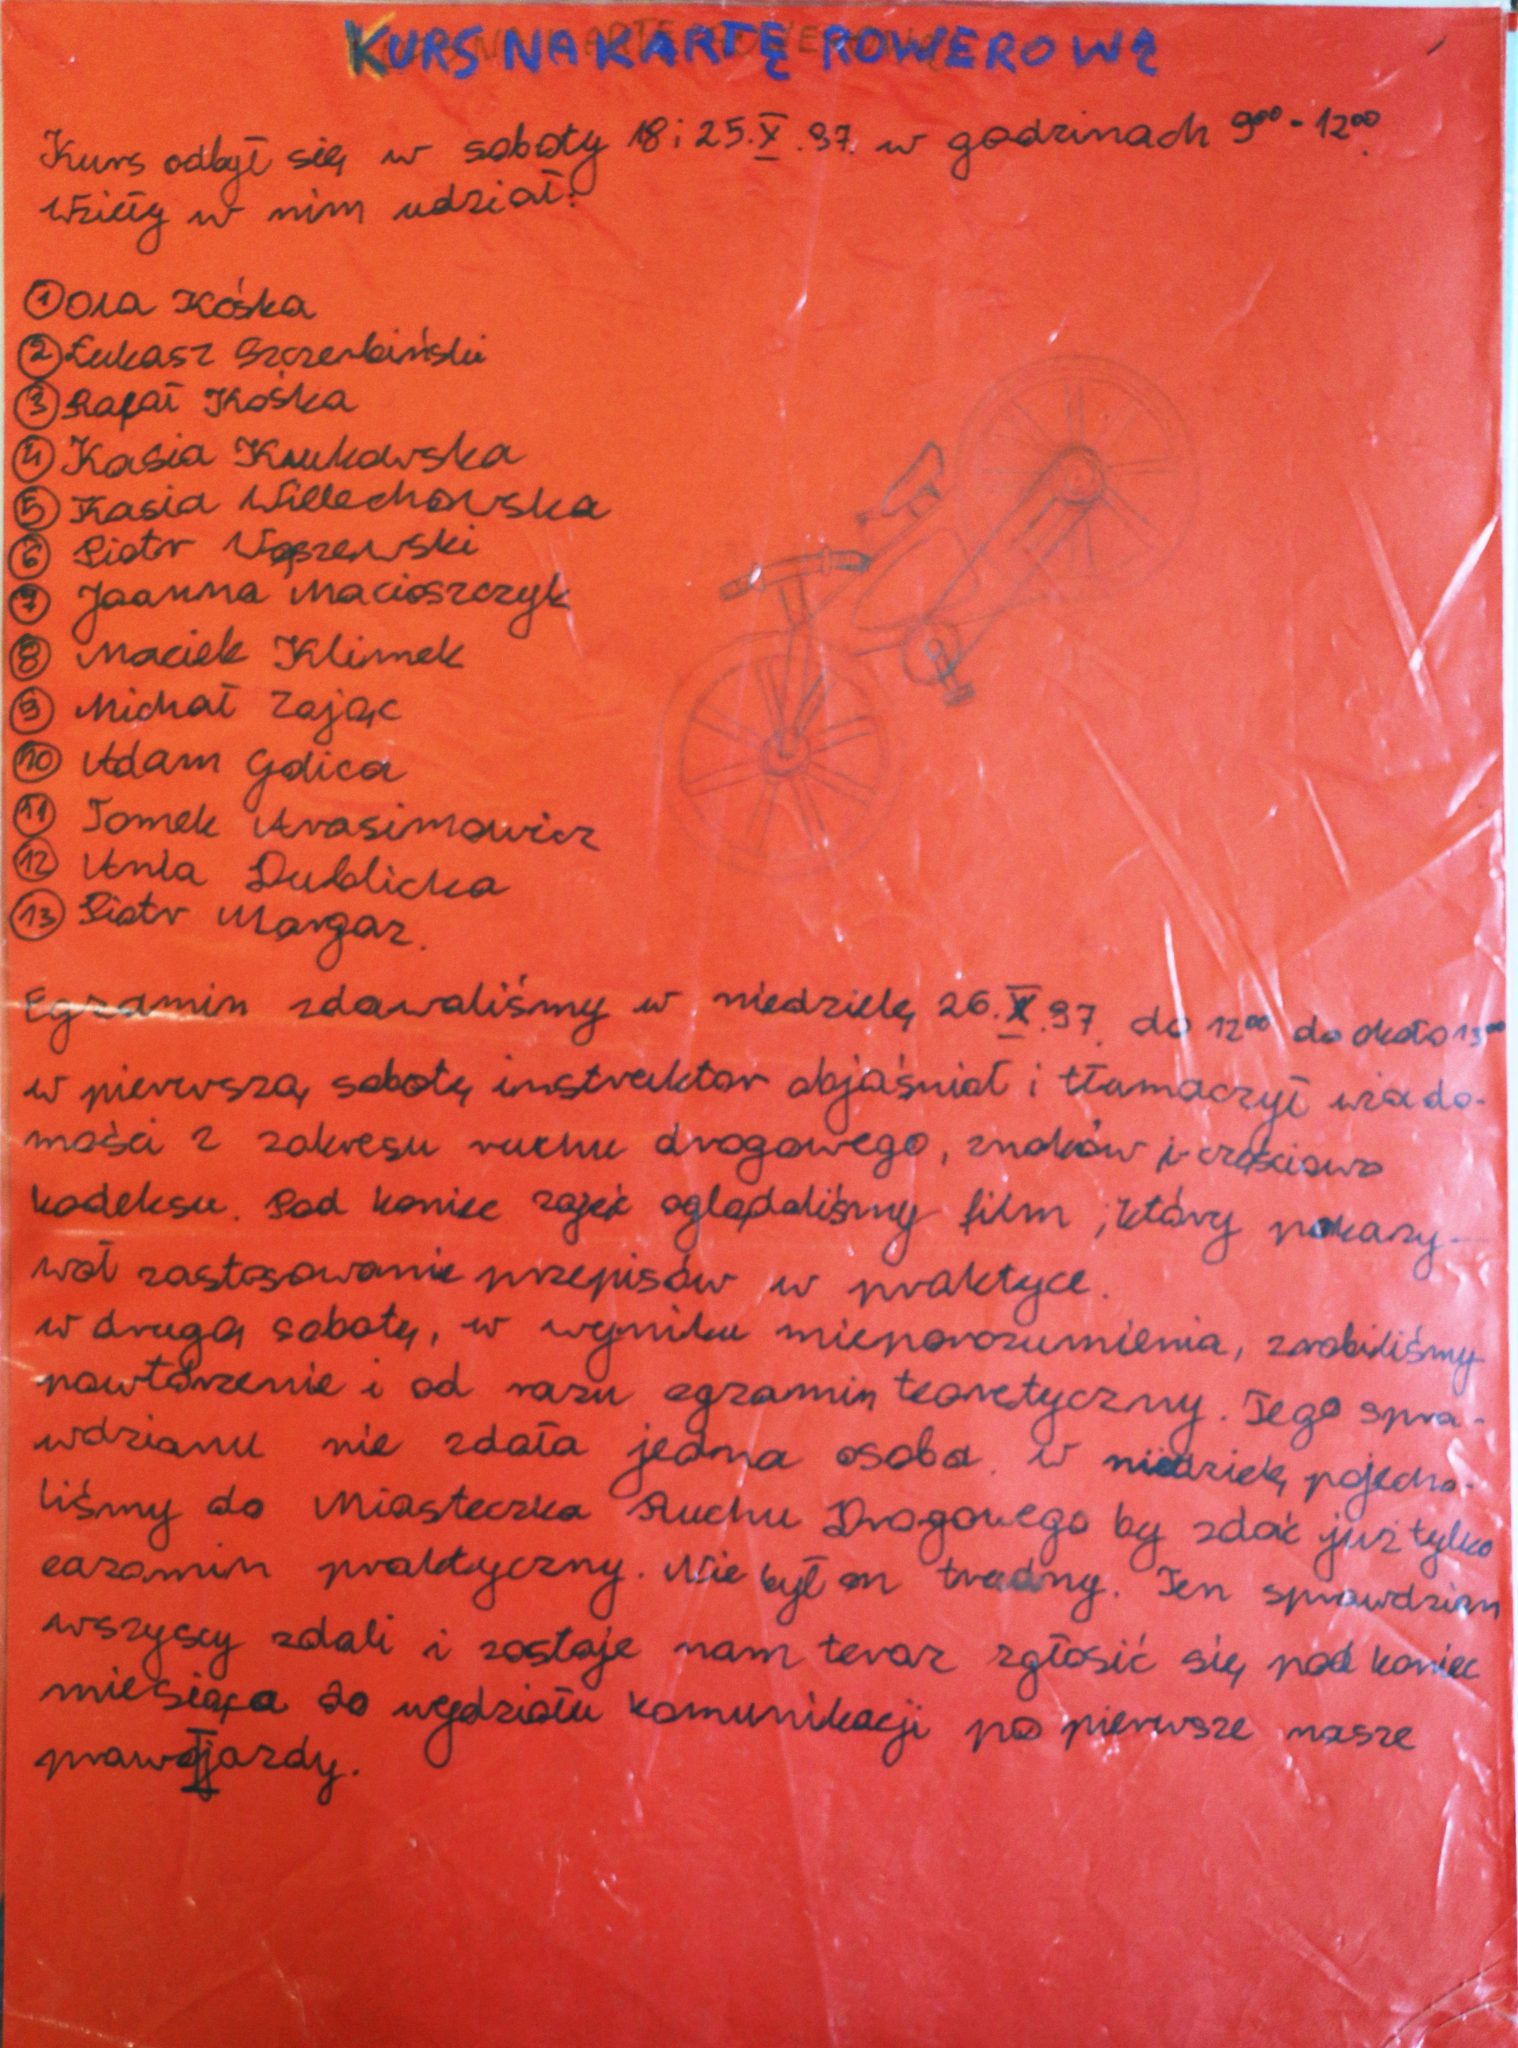 KURS NA KARTĘ ROWEROWĄ
Kurs odbył się w soboty 18 i 25.X.97. w godzinach 9⁰⁰ - 12⁰⁰.
Wzięły w nim udział:
1 Ola Kośka
2 Łukasz Szczerbiński
3 Rafał Kośka
4 Kasia Krukowska
5 Kasia Willechowska
6 Piotr Wąszewski
7 Joanna Macioszczyk
8 Maciek Klimek
9 Michał Zając
10 Adam Golica
11 Tomek Arasimowicz
12 Ania Dublicka
13 Piotr Margaz.
Egzamin zdawaliśmy w niedzielę 26.X.97. do 12⁰⁰ do około 13⁰⁰
w pierwszą sobotę instruktor objaśniał i tłumaczył wiado-
mości z zakresu ruchu drogowego, znaków i częściowo
kodeksu. Pod koniec zajęć oglądaliśmy film, który pokazy-
wał zastosowanie przepisów w praktyce.
w drugą sobotę, w wyniku nieporozumienia, zrobiliśmy
powtórzenie i od razu egzamin teoretyczny. Tego spra-
wdzianu nie zdała jedna osoba. w niedzielę pojecha-
liśmy do Miasteczka Ruchu Drogowego by zdać już tylko
egzamin praktyczny. Nie był on trudny. Ten sprawdzian
wszyscy zdali i zostaje nam teraz zgłosić się pod koniec
miesiąca do wydziału komunikacji po pierwsze nasze
prawo jazdy.